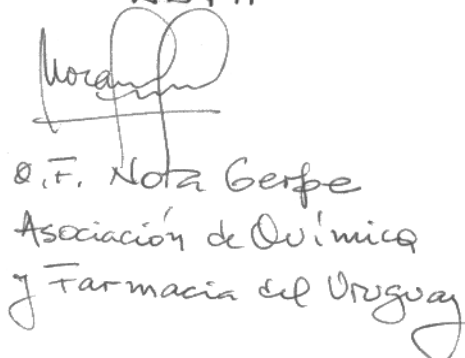 Q.F. Nora Gerpe
Asociación de Química
y Farmacia del Uruguay